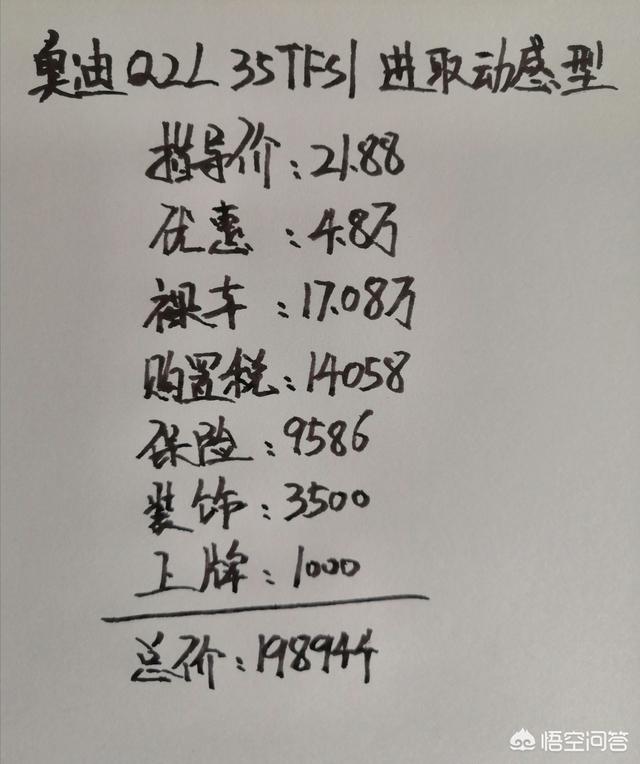 奥迪Q2L 35TFSI 进取动感型
指导价:21.88
优惠:4.8万
裸车:17.08万
购置税:14058
保险:9586
装饰:3500
上牌:1000
总价:198944
悟空问答